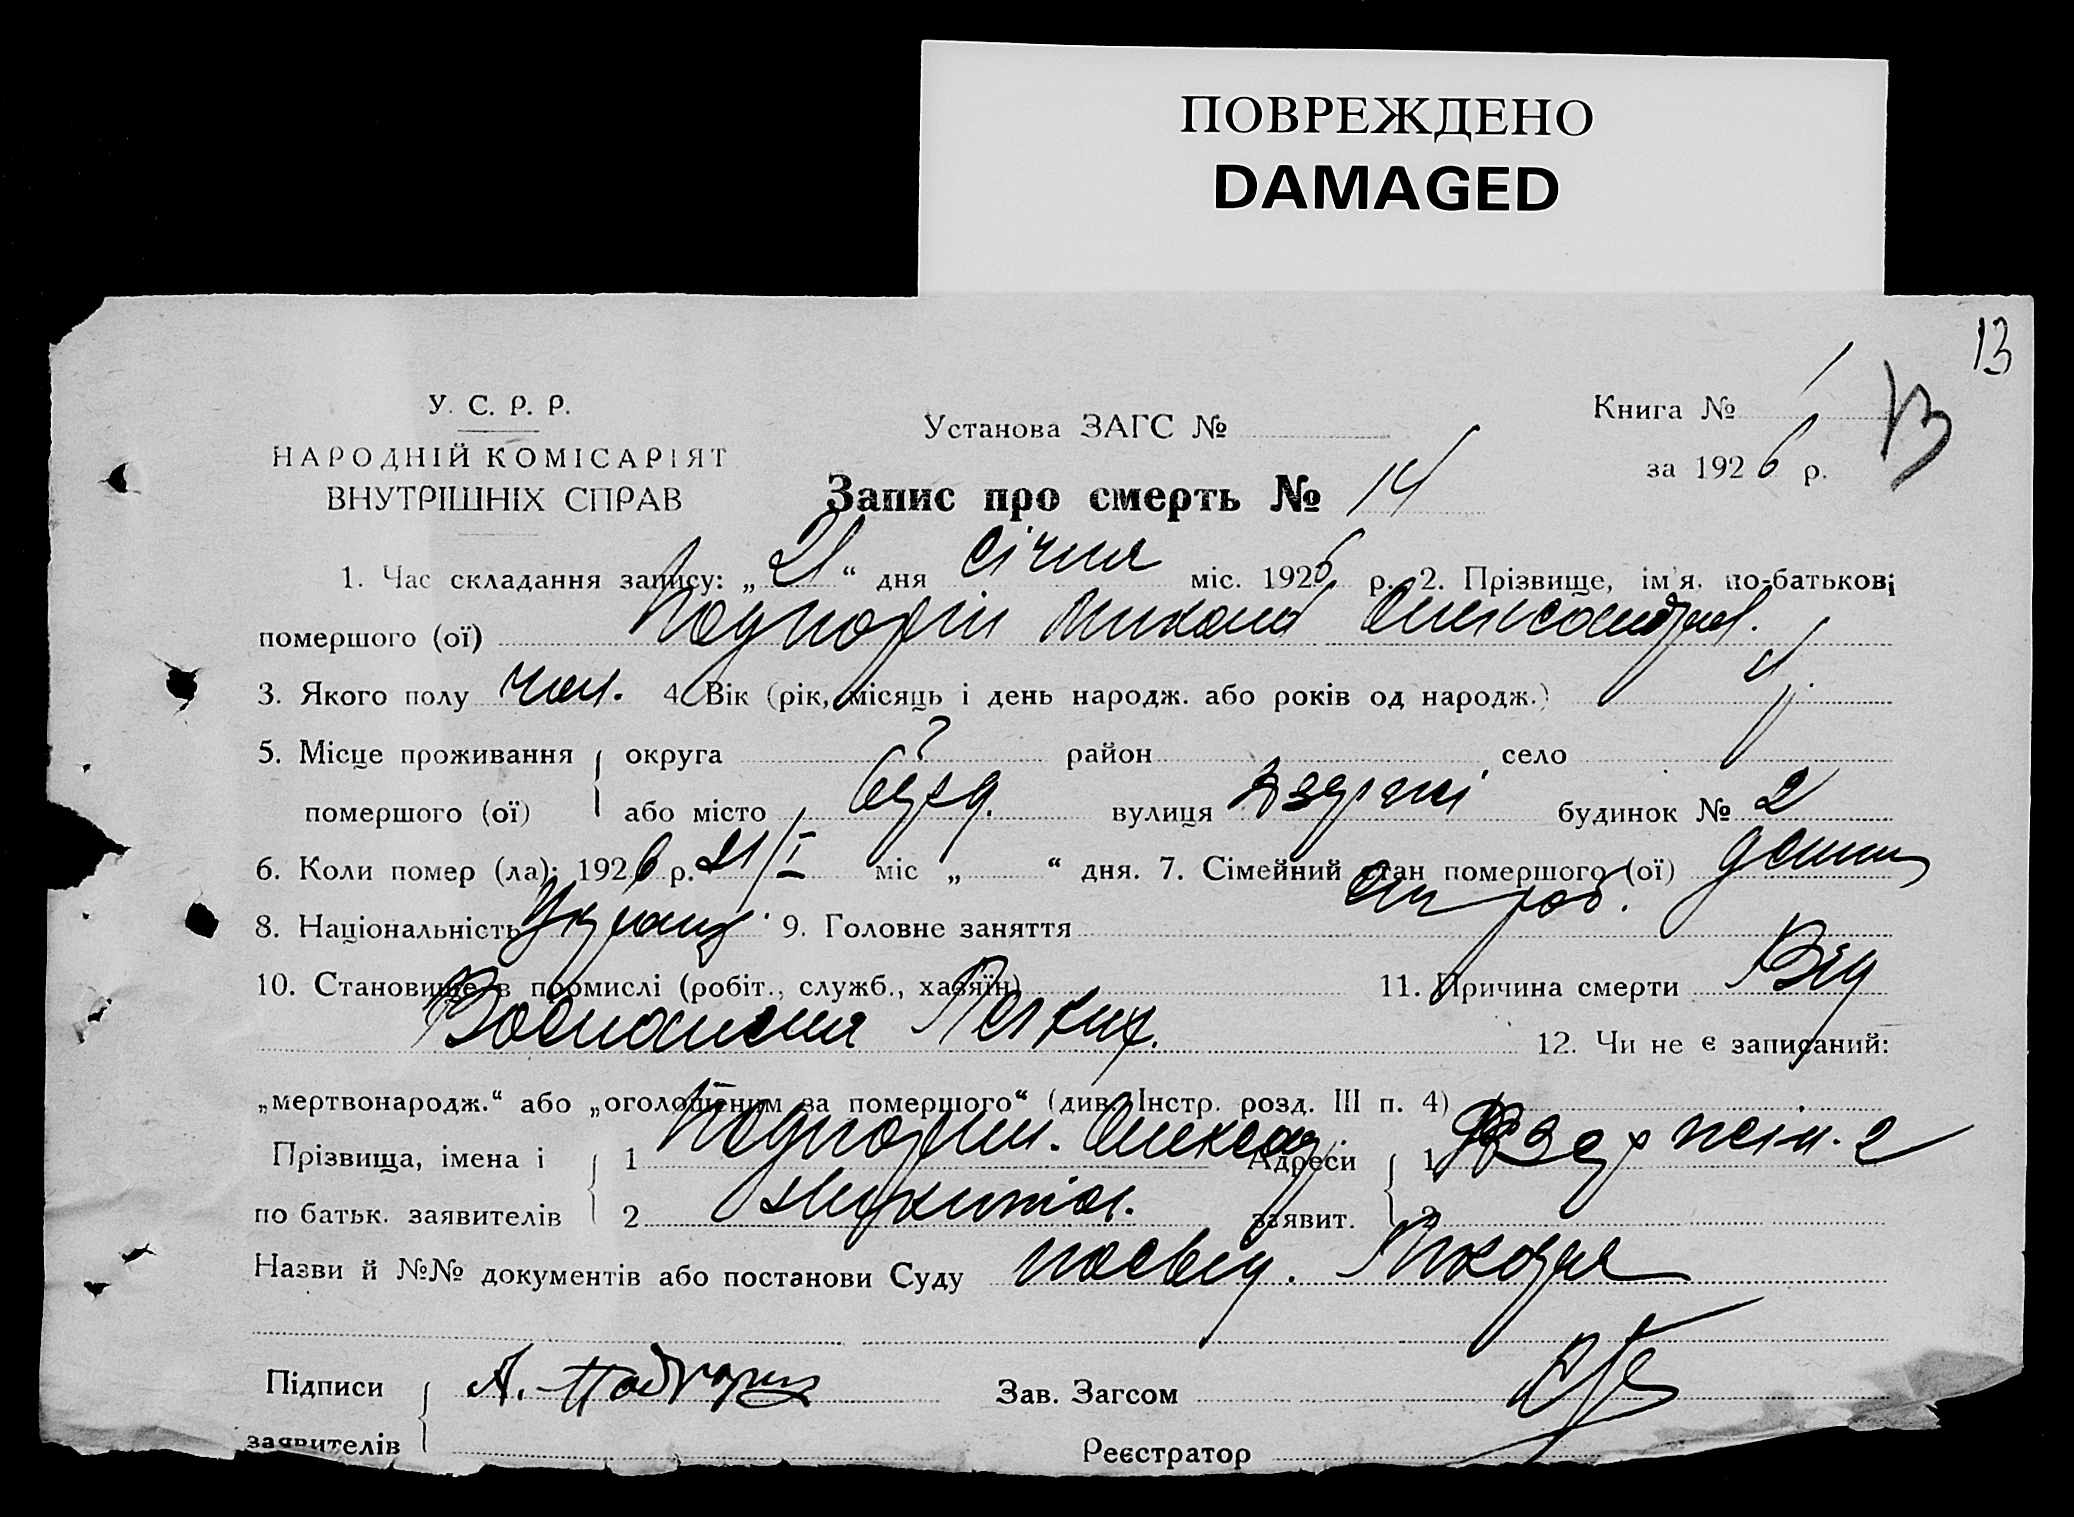 ПОВРЕЖДЕНО
DAMAGED
13
У. С. Р. Р.
НАРОДНІЙ КОМІСАРІЯТ
ВНУТРІШНІХ СПРАВ
Установа ЗАГС №
Книга № 1
13
за 1926 р.
Запис про смерть № 14
1. Час складання запису: „21“ дня січня міс. 1926 р. 2. Прізвище, ім'я, по-батькові
помершого (ої) Михаил Олександров.
3. Якого полу чол. 4. Вік (рік, місяць і день народж. або років од народж.)
5. Місце проживання округа район село
помершого (ої) або місто вулиця будинок № 2
6. Коли помер (ла): 1926 р. 21/I міс „ “ дня. 7. Сімейний стан помершого (ої)
8. Національність 9. Головне заняття
10. Становище в промислі (робіт., служб., хазяїн) 11. Причина смерти Від
Воспаления Легких. 12. Чи не є записаний:
„мертвонародж.“ або „оголошеним за помершого“ (див. Інстр. розд. III п. 4)
Прізвища, імена і 1 Адреси 1 2
по батьк. заявителів 2 заявит. 2
Назви й №№ документів або постанови Суду посвід. Лікаря
Підписи А. Зав. Загсом
заявителів Реєстратор